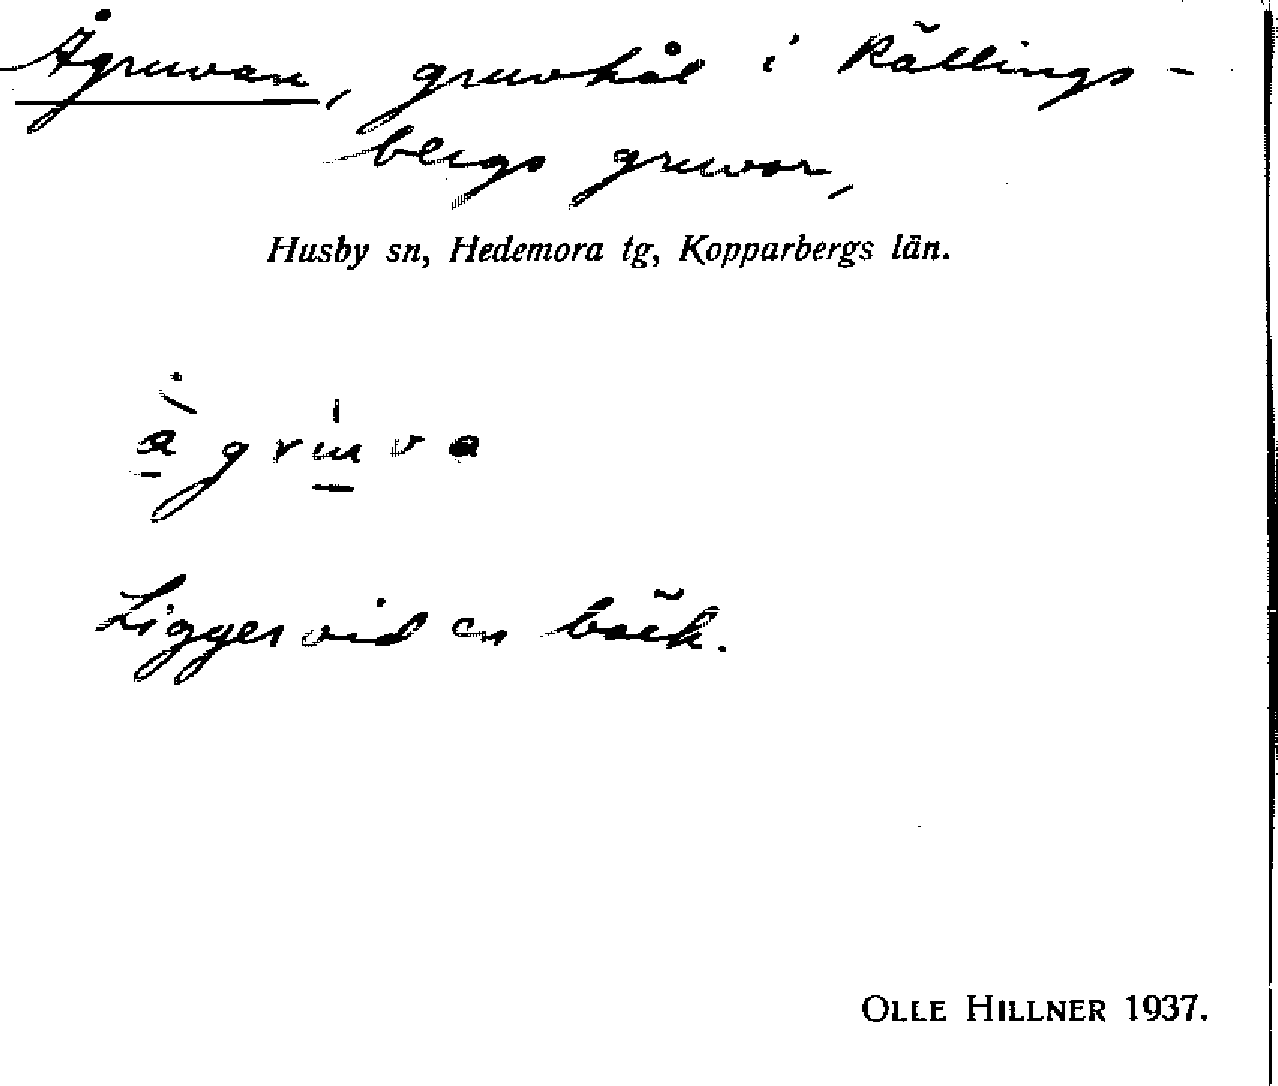 Ågruvan, gruvhål i Rällings-
bergs gruvor,
Husby sn, Hedemora tg, Kopparbergs län.
Ligger vid en bäck.
OLLE HILLNER 1937.